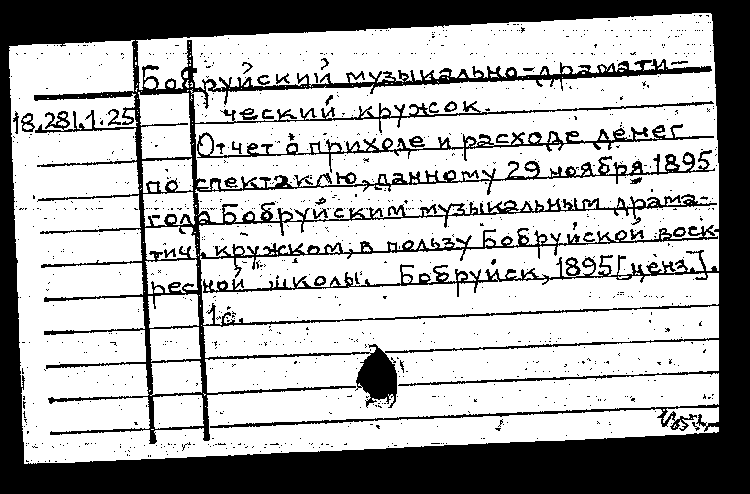 Бобруйский музыкально-драмати-
18.281.1.25 ческий кружок.
Отчет о приходе и расходе денег
по спектаклю, данному 29 ноября 1895
года Бобруйским музыкальным драма-
тич. кружком, в пользу Бобруйской воск-
ресной школы. Бобруйск, 1895 [ценз.].
1с.